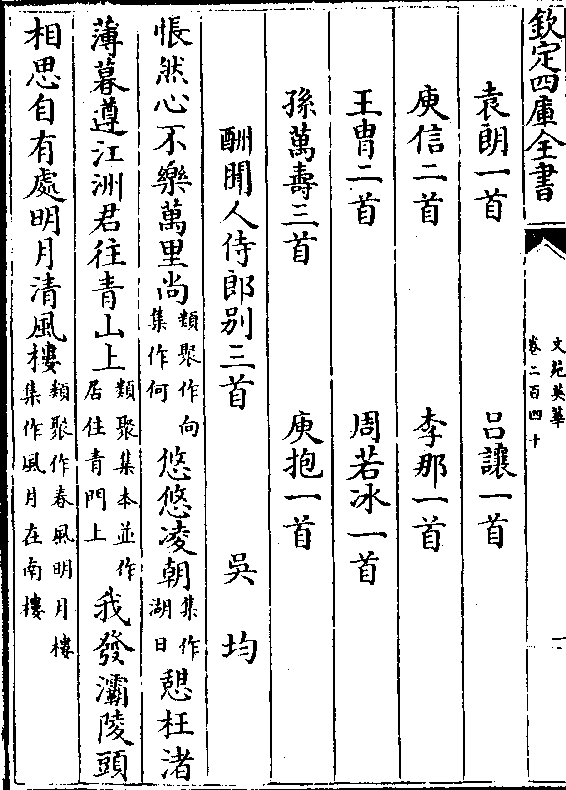 欽定四庫全書
文苑英華
卷二百四十
一
袁朗一首 呂讓一首
庾信二首 李那一首
王胄二首 周若冰一首
孫萬壽三首 庾抱一首
酬聞人侍郎别三首 吳均
悵然心不樂萬里尚類聚作向集作何悠悠凌朝集作湖日憩枉渚
薄暮遵江洲君往青山上類聚集本並作居住青門上我發灞陵頭
相思自有處明月清風樓類聚作春風明月樓集作風月在南樓